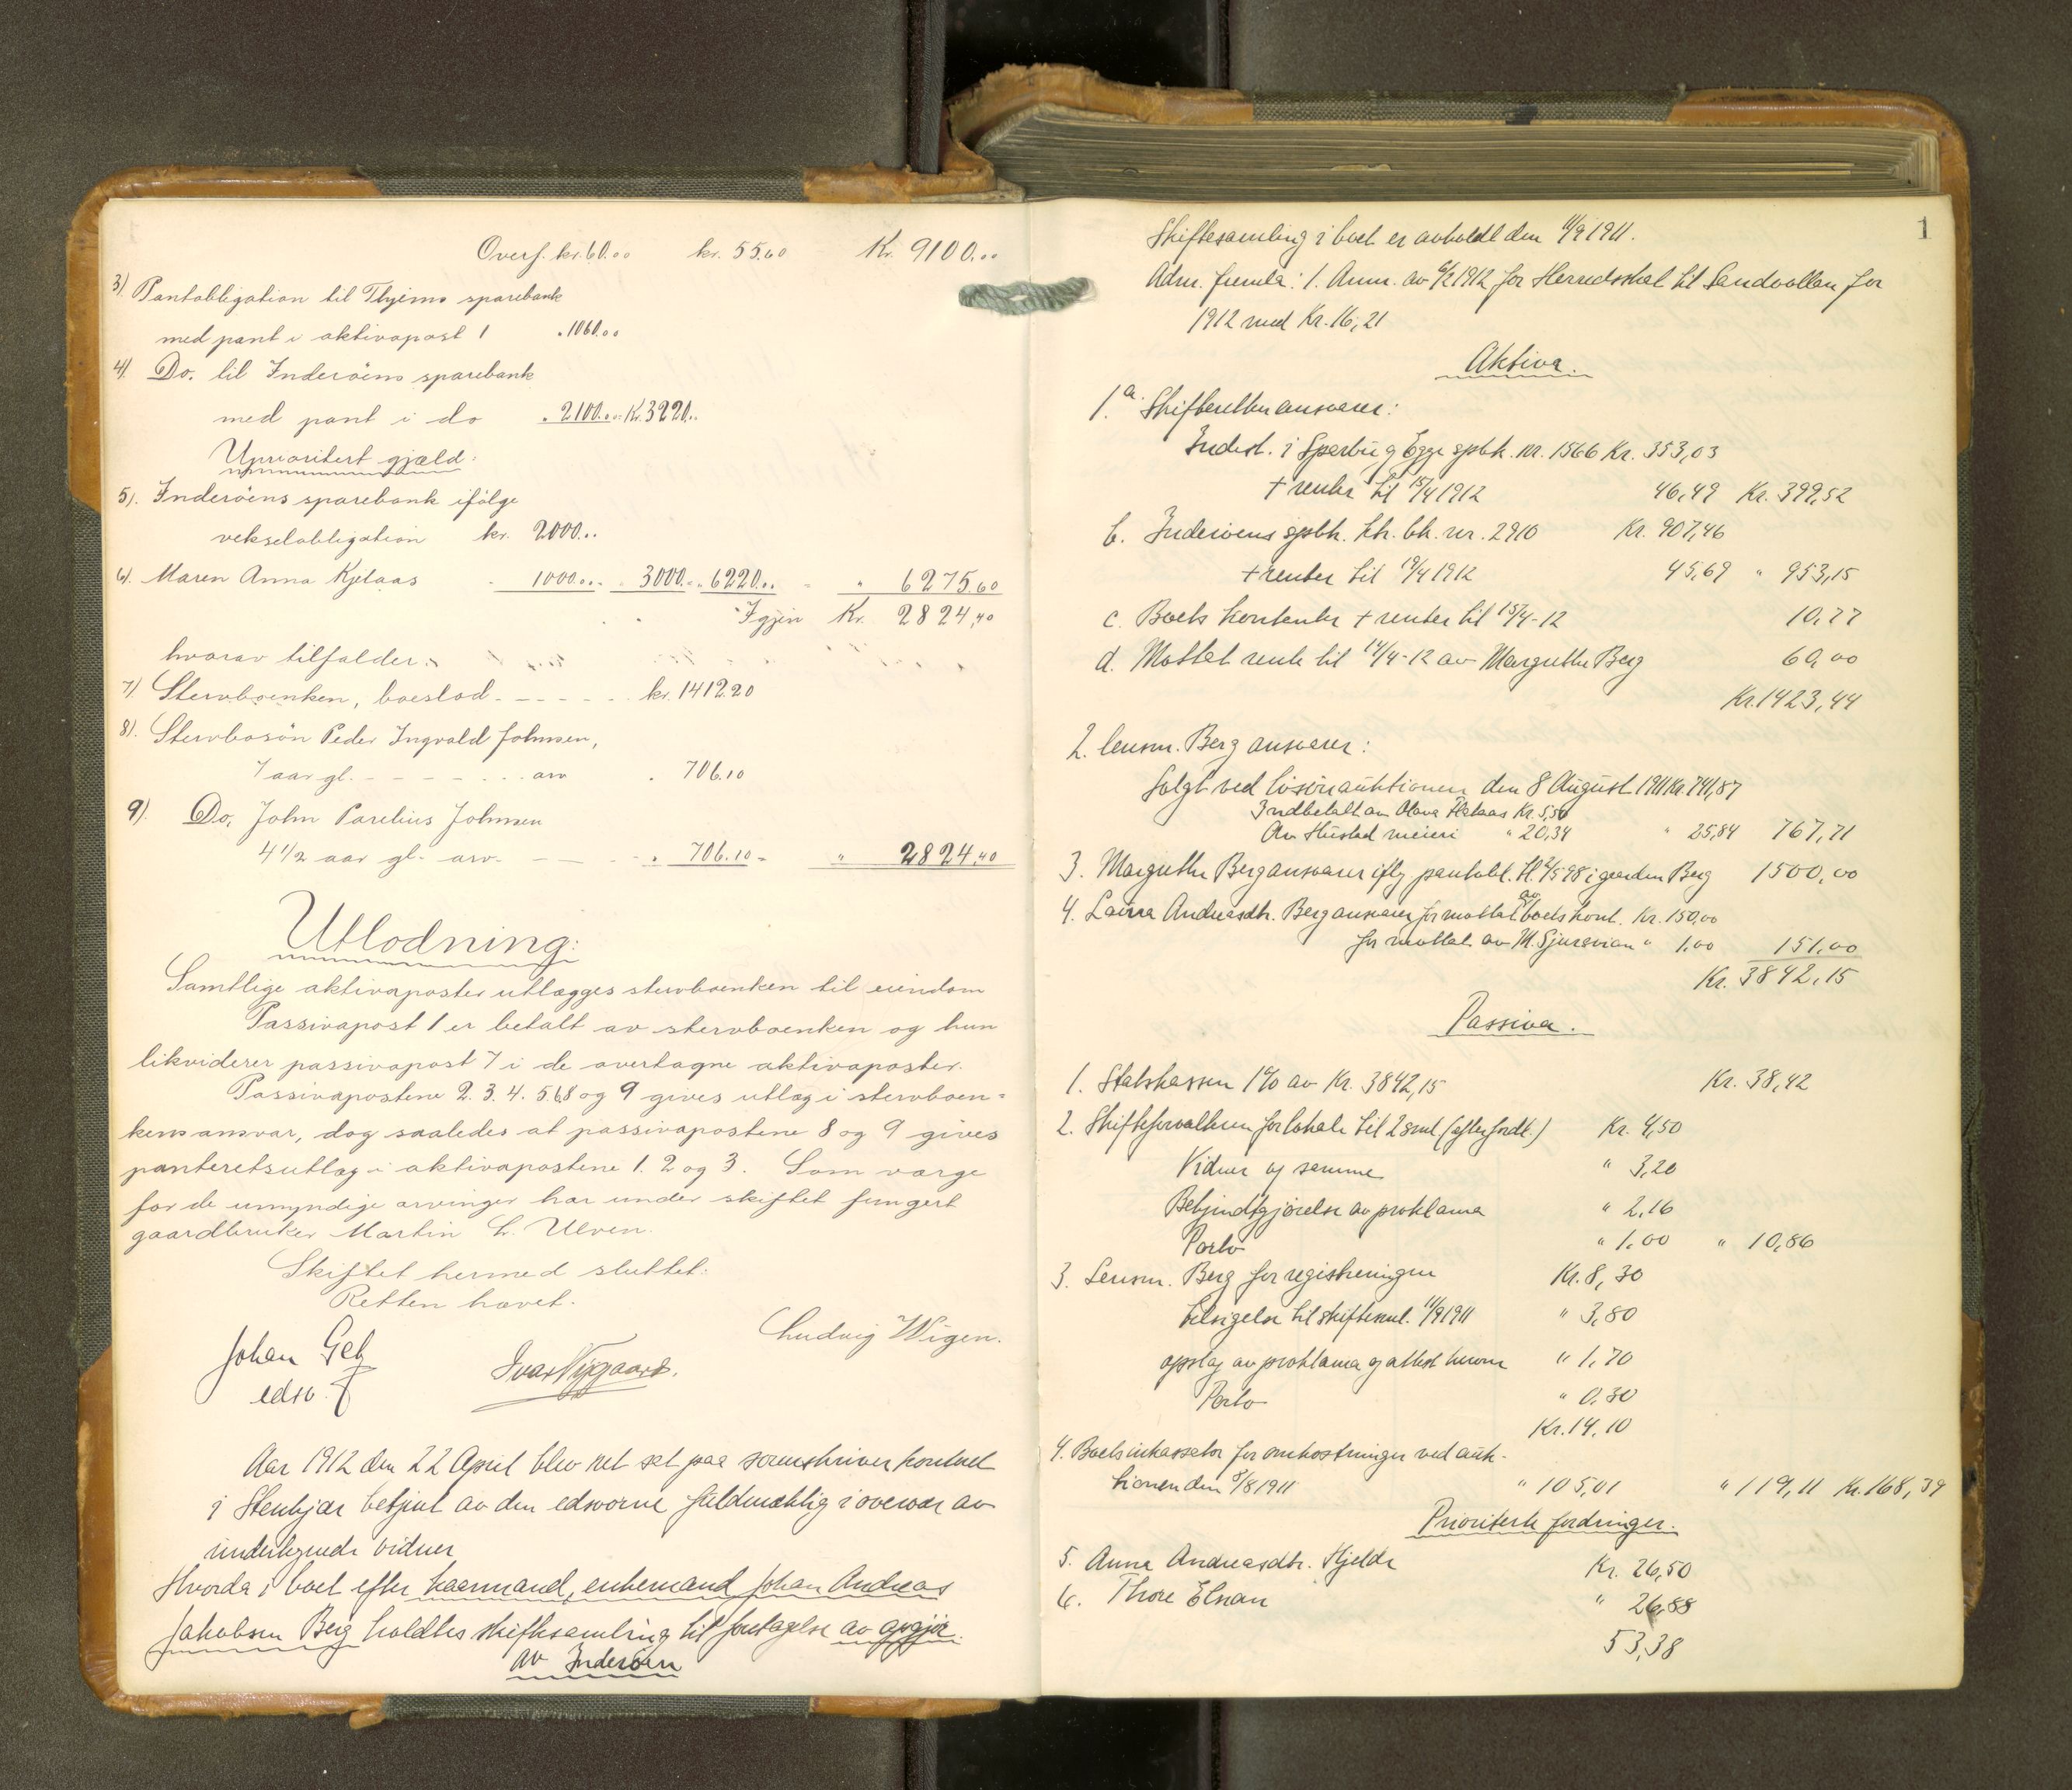 Overf. kr. 60.00 kr. 55.60 Kr. 9100.00
3). Pantobligation til
sparebank
med pant i aktivapost 1 " 1060.00
4). Do. til Inderöens sparebank
med pant i do " 2100.00 = Kr. 3220..
Uprioritert gjæld:
5). Inderöens sparebank ifölge
vekselobligation kr. 2000..
6). Maren Anna Kjelaas - 1000.00 - 3000.. - 6220.. " 6275.60
Igjen Kr. 2824,40
hvorav tilfalder:
7). Stervboenken, boeslod - - - - - kr. 1412.20
8). Stervbosön Peder Ingvald Johnsen,
7 aar gl. - - - - - arv " 706.10
9). Do, John Parelius Johnsen
4 1/2 aar gl. arv. - - - " 706.10 = " 2824,40
Utlodning:
Samtlige aktivaposter utlægges stervboenken til eiendom
Passivapost 1 er betalt av stervboenken og hun
likviderer passivapost 7 i de overtagne aktivaposter.
Passivapostene 2. 3. 4. 5. 6. 8 og 9 gives utlæg i stervboen=
kens ansvar, dog saaledes at passivapostene 8 og 9 gives
panteretsutlæg i aktivapostene 1. 2 og 3. Som værge
for de umyndige arvinger har under skiftet fungert
gaardbruker Martin L. Ulven.
Skiftet hermed sluttet.
Retten hævet.
Ludvig Wigen.
Johan
edsv. f
Ivar Nygaard.
Aar 1912 den 22 April blev ret sat paa sorenskriverkontoret
i Stenkjær betjent av den edsvorne fuldmægtig i overvær av
undertegnede vidner
Hvorda i boet efter kaarmand, enkemand Johan Andreas
Jakobsen Berg holdtes skiftesamling til foretagelse av opgjör.
av Inderöen
1
Skiftesamling i boet er avholdt den 11/9 1911.
Adm. fremla: 1. Anm. av 6/2 1912 for Herredsskat til Sandvollan for
1912 med Kr. 16,21
Aktiva.
1. a. Skifteretten ansvarer:
Indest. i Sparbu og Egge spbk. nr. 1566 Kr. 353,03
+ renter til 15/4 1912 46,49 Kr. 399,52
b. Inderöens spbk. ktr. bk. nr. 2910 Kr. 907,46
+ renter til 19/4 1912 45,69 " 953,15
c. Boets kontanter + renter til 15/4-12 10,77
d. Mottat rente til 14/4-12 av Margrethe Berg 60,00
Kr. 1423,44
2. lensm. Berg ansvarer:
solgt ved lösöreauktionen den 8 August 1911 Kr. 741,87
Indbetalt av Olava Kr. 5,50
Av Hustad meieri " 20,34 " 25,84 767,71
3. Margrethe Berg ansvarer iflg pantobl. tl. 2/5 98 i gaarden Berg 1500,00
4. Laura Andreasdtr. Berg ansvarer for mottat av boets kont. Kr. 150,00
for mottat av M. " 1,00 151,00
Kr. 3842,15
Passiva.
1. Statskassen 1% av Kr. 3842,15 Kr. 38,42
2. Skifteforvalteren for lokale til 2 saml. (efter fordt.) Kr. 4,50
Vidner og samme " 3,20
Bekjendtgjörelse av proklama " 2,16
Porto " 1,00 " 10,86
3. Lensm. Berg for registreringen Kr. 8,30
tilsigelse til skiftesaml. 11/9 1911 " 3,80
opslag av proklama og attest herom " 1,70
Porto " 0,30
Kr. 14,10
4. Boets inkassator for omkostninger ved auk-
tionen den 8/8 1911 " 105,01 " 119,11 Kr. 168,39
Prioriterte fordringer.
5. Anna Andreasdtr. Hjelde Kr. 26,50
6. Thore Elnan " 26,88
53,38